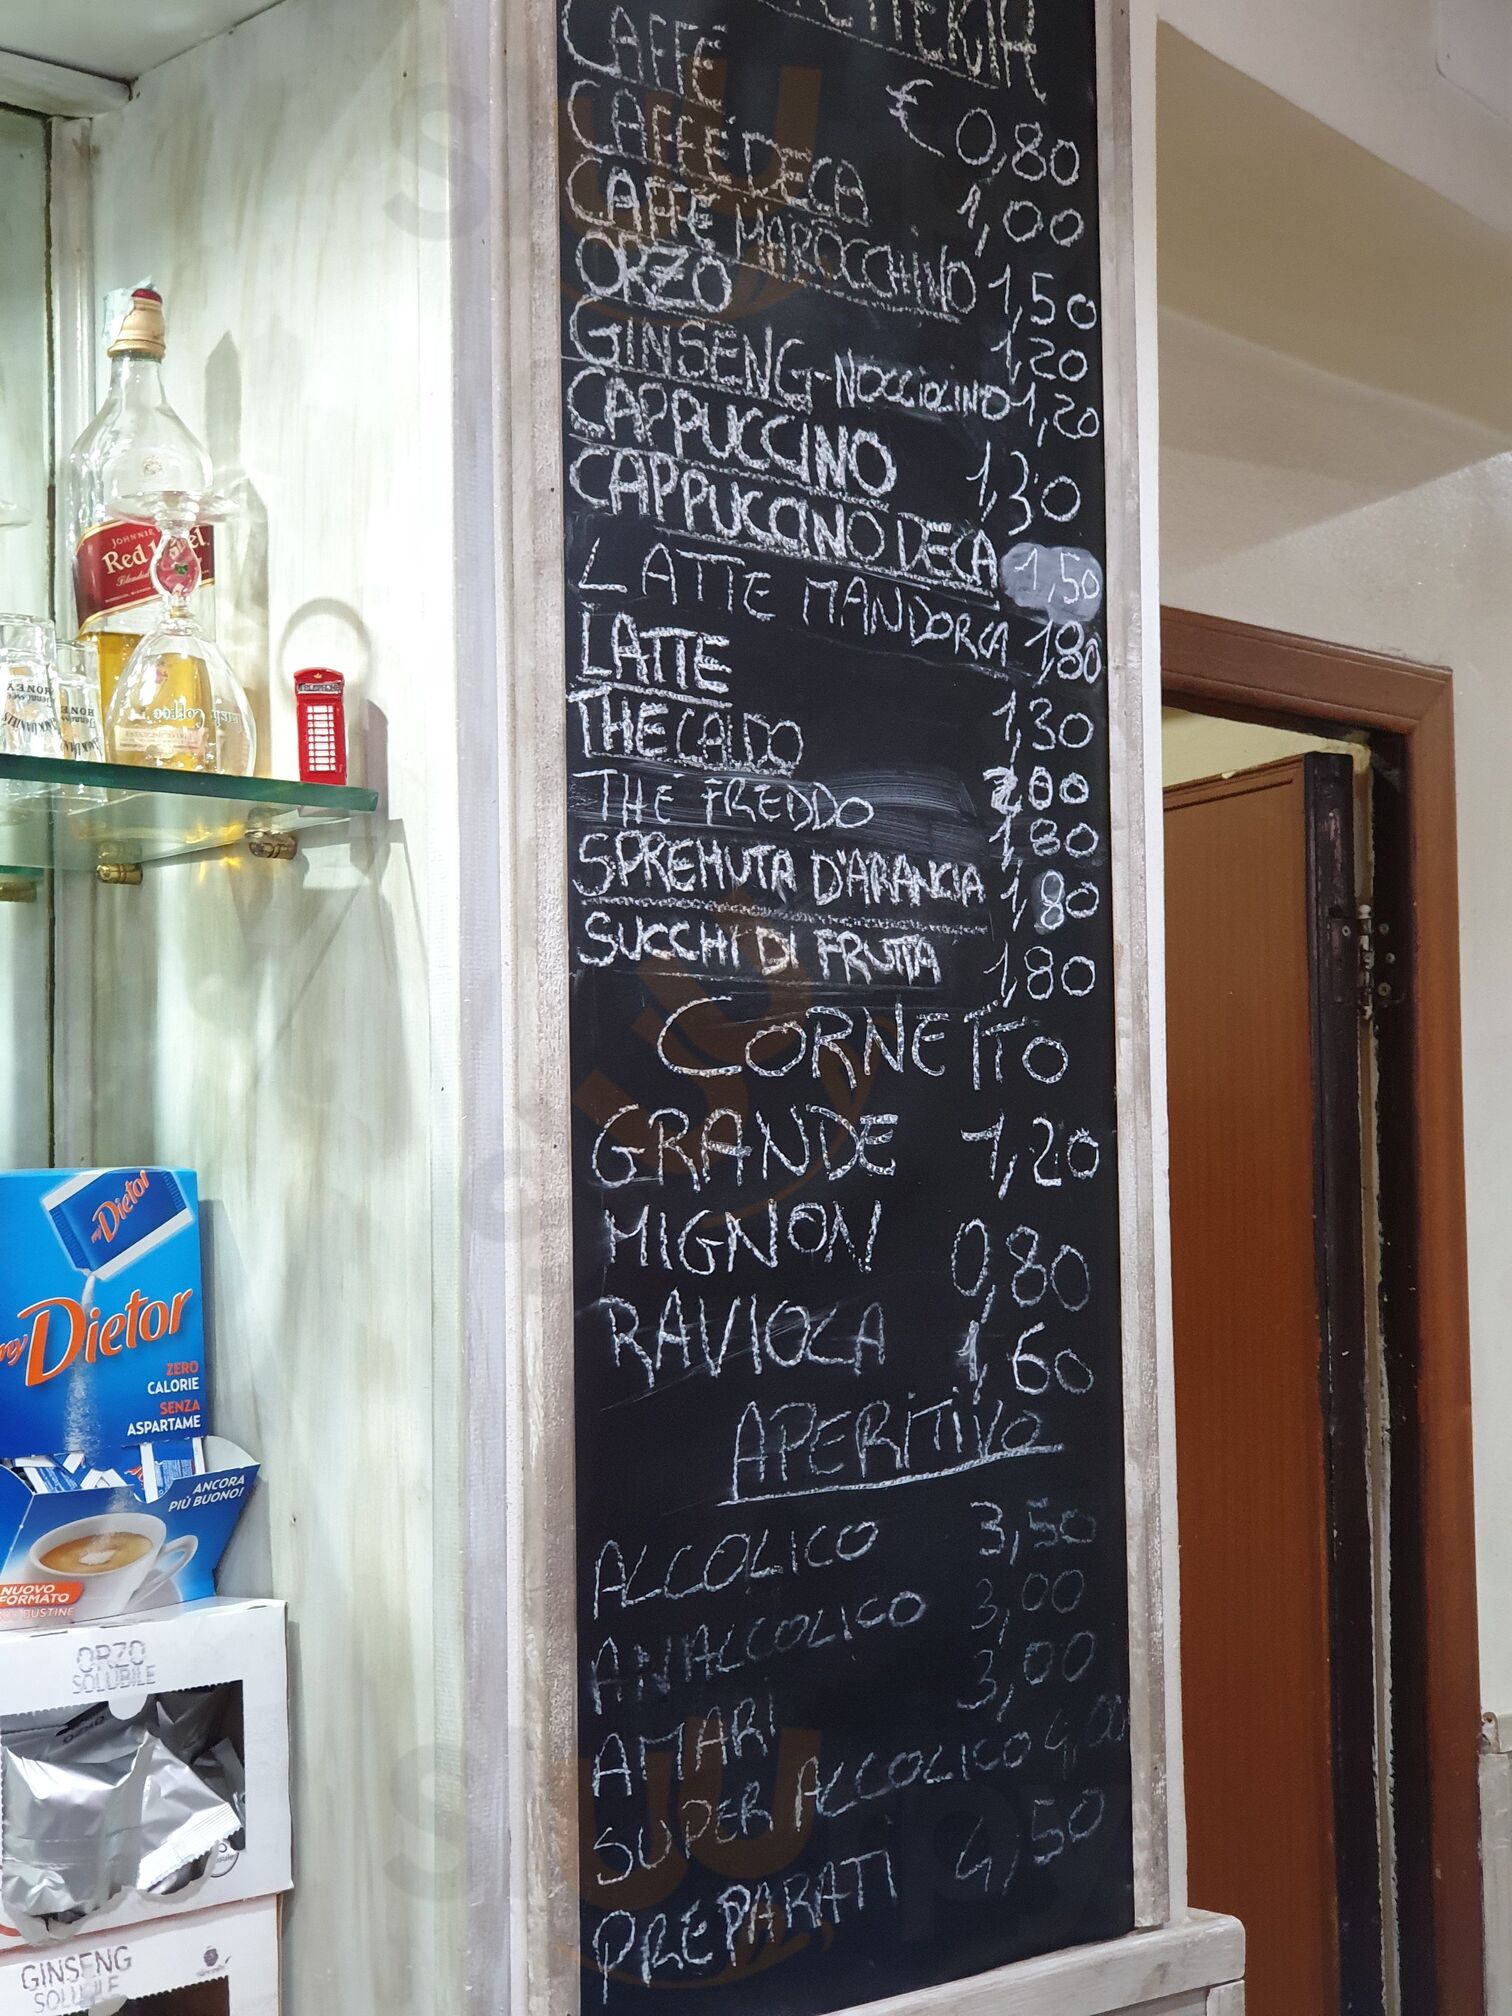 CAFFÉ € 0,80
CAFFÉ DECA 1,00
CAFFÉ MAROCCHINO 1,50
ORZO 1,20
GINSENG-NOCCIOLINO 1,20
CAPPUCCINO 1,30
CAPPUCCINO DECA 1,50
LATTE MANDORLA 1,80
LATTE 1,30
THE CALDO 2,00
THÉ FREDDO 1,80
SPREMUTA D'ARANCIA 1,80
SUCCHI DI FRUTTA 1,80
CORNETTO
GRANDE 1,20
MIGNON 0,80
RAVIOLA 1,60
APERITIVO
ALCOLICO 3,50
ANALCOLICO 3,00
AMARI 3,00
SUPER ALCOLICO 4,00
PREPARATI 4,50
JOHNNIE
Red Label
Blended
my Dietor
my Dietor
ZERO
CALORIE
SENZA
ASPARTAME
ANCORA
PIÙ BUONO!
NUOVO
FORMATO
BUSTINE
ORZO
SOLUBILE
GINSENG
SOLUBILE